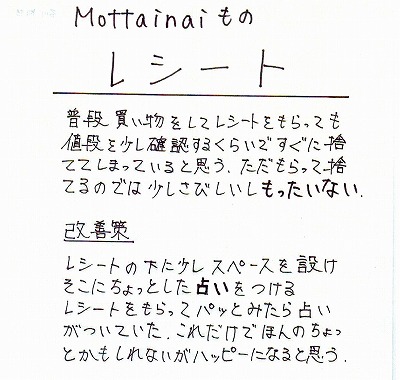 Mottainaiもの
レシート
普段買い物をしてレシートをもらっても
値段を少し確認するくらいですぐに捨
ててしまっていると思う。ただもらって捨
てるのでは少しさびしいしもったいない。
改善策
レシートの下に少しスペースを設け
そこにちょっとした占いをつける
レシートをもらってパッとみたら占い
がついていた。これだけでほんのちょっ
とかもしれないがハッピーになると思う。